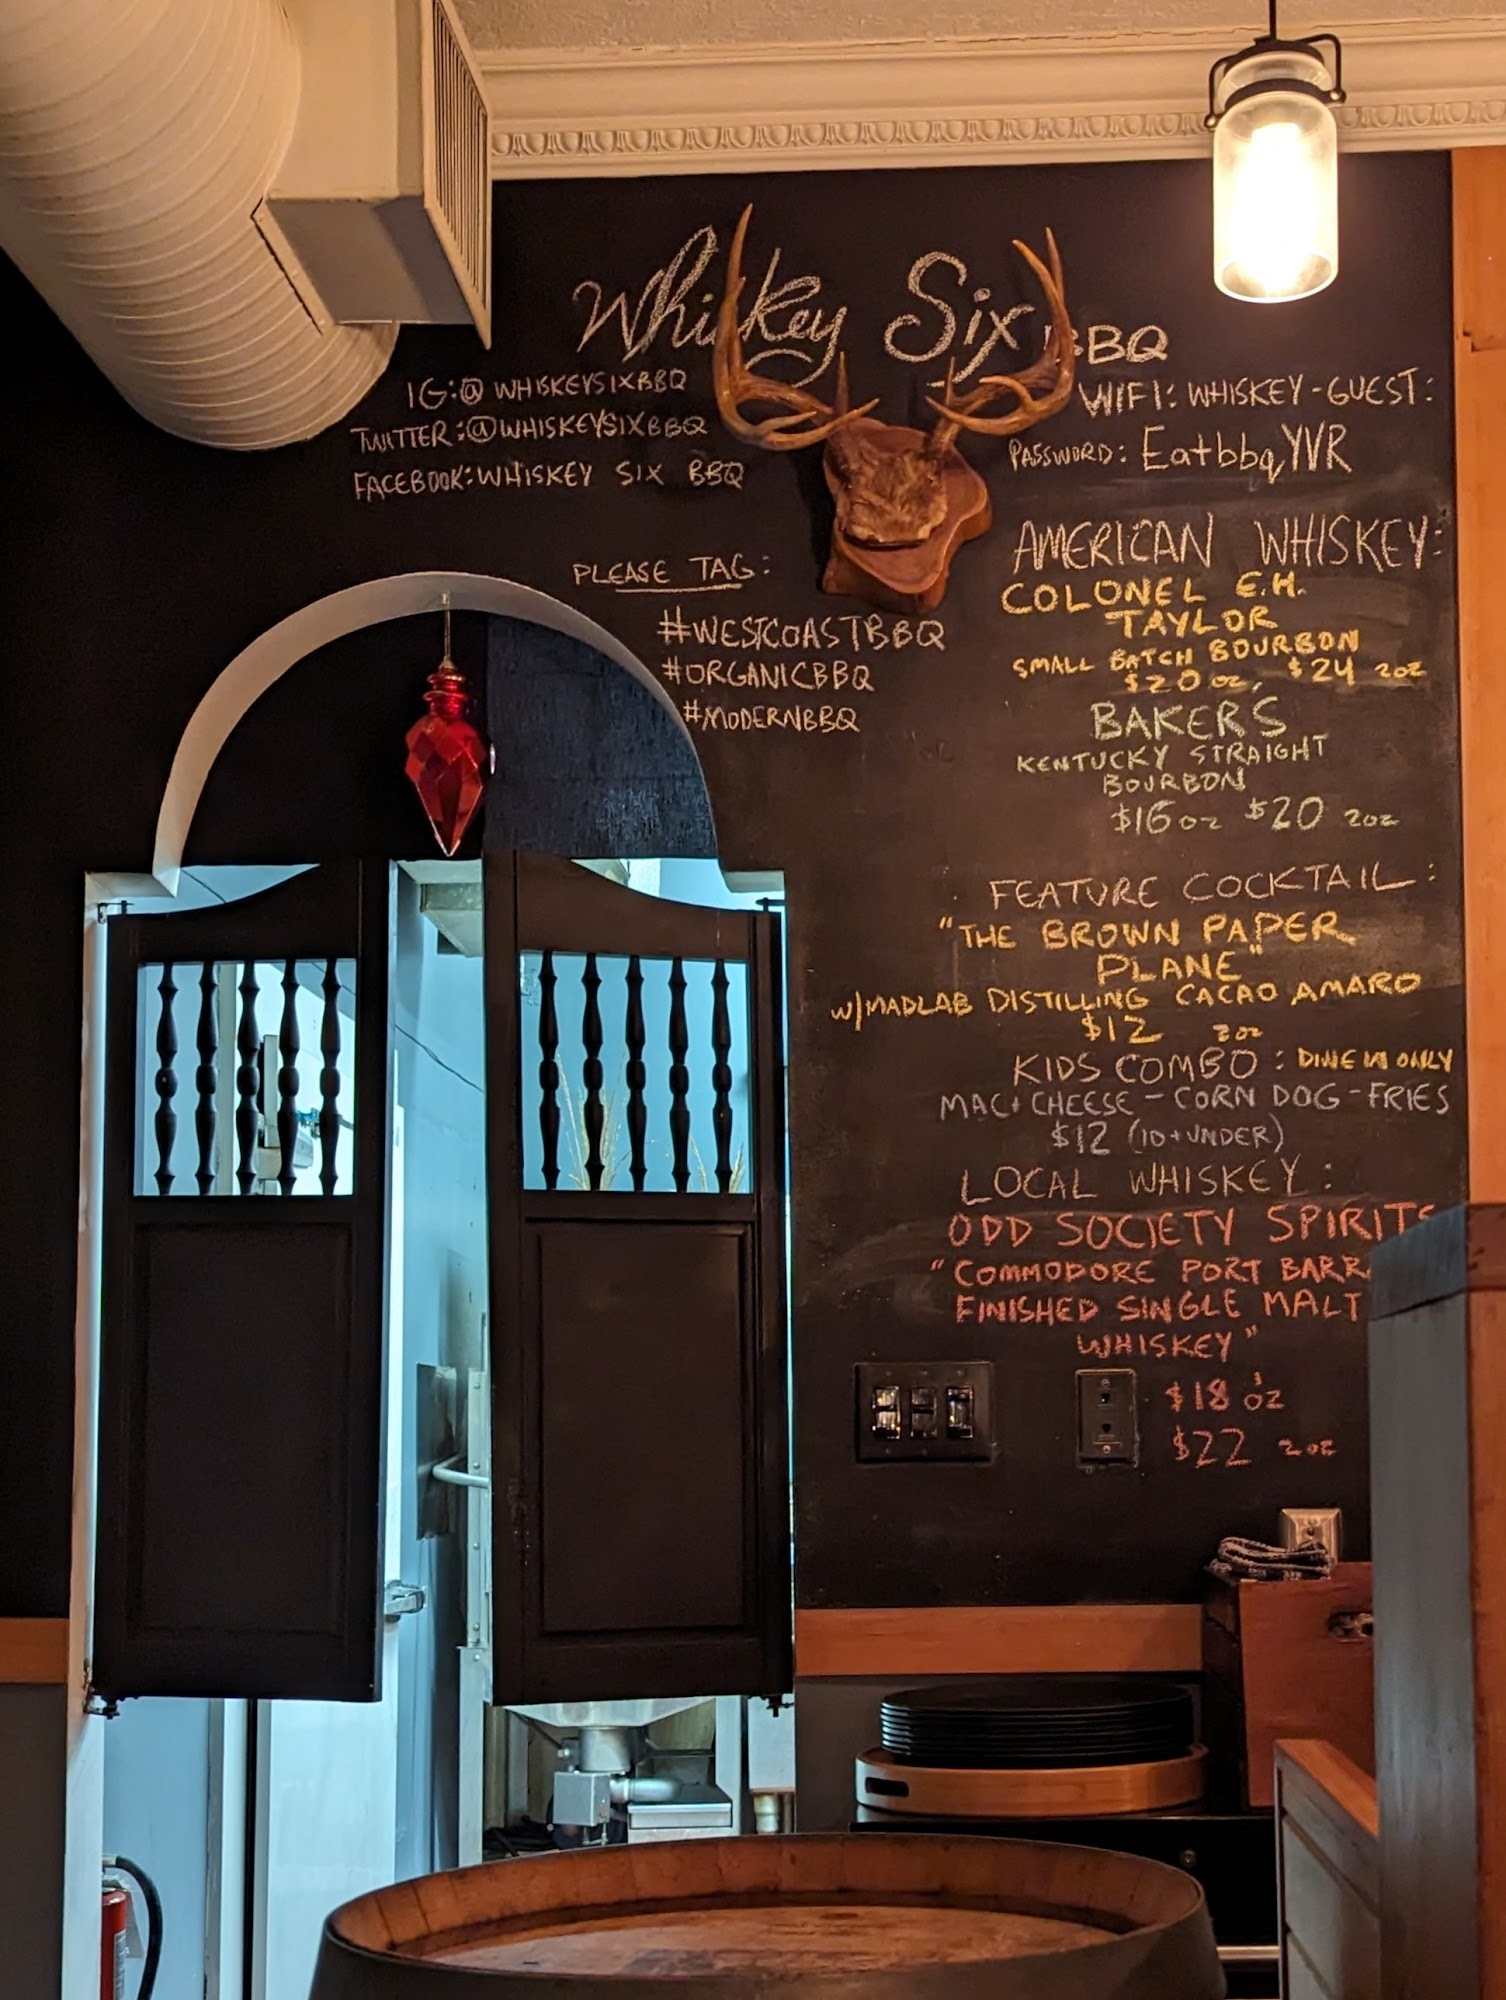 Whiskey Six BBQ
IG:@WHISKEYSIXBBQ
TWITTER:@WHISKEYSIXBBQ
FACEBOOK:WHISKEY SIX BBQ
PLEASE TAG:
#WESTCOASTBBQ
#ORGANICBBQ
#MODERNBBQ
WIFI: WHISKEY-GUEST:
PASSWORD: EatbbqYVR
AMERICAN WHISKEY:
COLONEL E.H.
TAYLOR
SMALL BATCH BOURBON
$20 oz, $24 2oz
BAKERS
KENTUCKY STRAIGHT
BOURBON
$16 oz $20 2oz
FEATURE COCKTAIL:
"THE BROWN PAPER
PLANE"
W/MADLAB DISTILLING CACAO AMARO
$12 2oz
KIDS COMBO: DINE IN ONLY
MAC+CHEESE-CORN DOG-FRIES
$12 (10+UNDER)
LOCAL WHISKEY:
ODD SOCIETY SPIRITS
"COMMODORE PORT BARR
FINISHED SINGLE MALT
WHISKEY"
$18 1oz
$22 2oz